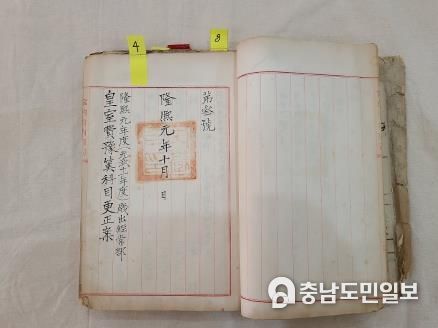 4
8
第叅號
隆熙元年十月 日
隆熙元年度(光武十一年度)歲出經常部
皇室費豫算科目更正案
충남도민일보